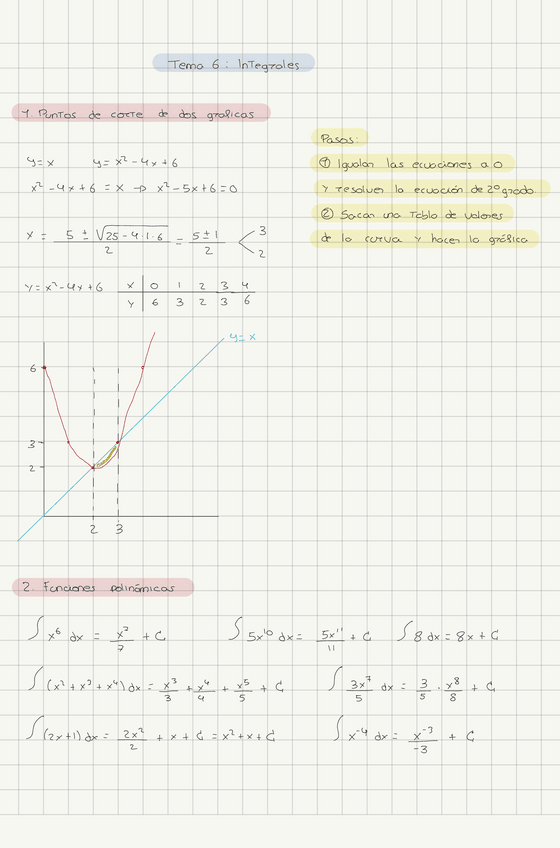 Tema 6: Integrales
1. Puntos de corte de dos graficas
Pasos:
① Igualar las ecuaciones a 0
y resolver la ecuación de 2º grado.
② Sacar una Tabla de valores
de la curva y hacer la gráfica
y=x y=x²-4x+6
x²-4x+6=x → x²-5x+6=0
x = (5 ± √(25-4·1·6))/2 = (5±1)/2 < 3 2
y=x²-4x+6 x | 0 1 2 3 4
y | 6 3 2 3 6
y=x
6
3
2
2 3
2. Funciones polinómicas
∫ x⁶ dx = x⁷/7 + C ∫ 5x¹⁰ dx = 5x¹¹/11 + C ∫ 8 dx = 8x + C
∫ (x²+x³+x⁴) dx = x³/3 + x⁴/4 + x⁵/5 + C ∫ 3x⁷/5 dx = 3/5 · x⁸/8 + C
∫ (2x+1) dx = 2x²/2 + x + C = x²+x+C ∫ x⁻⁴ dx = x⁻³/-3 + C